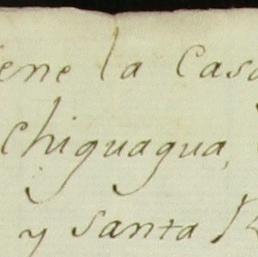 iene la Casa
Chiguagua,
y Santa